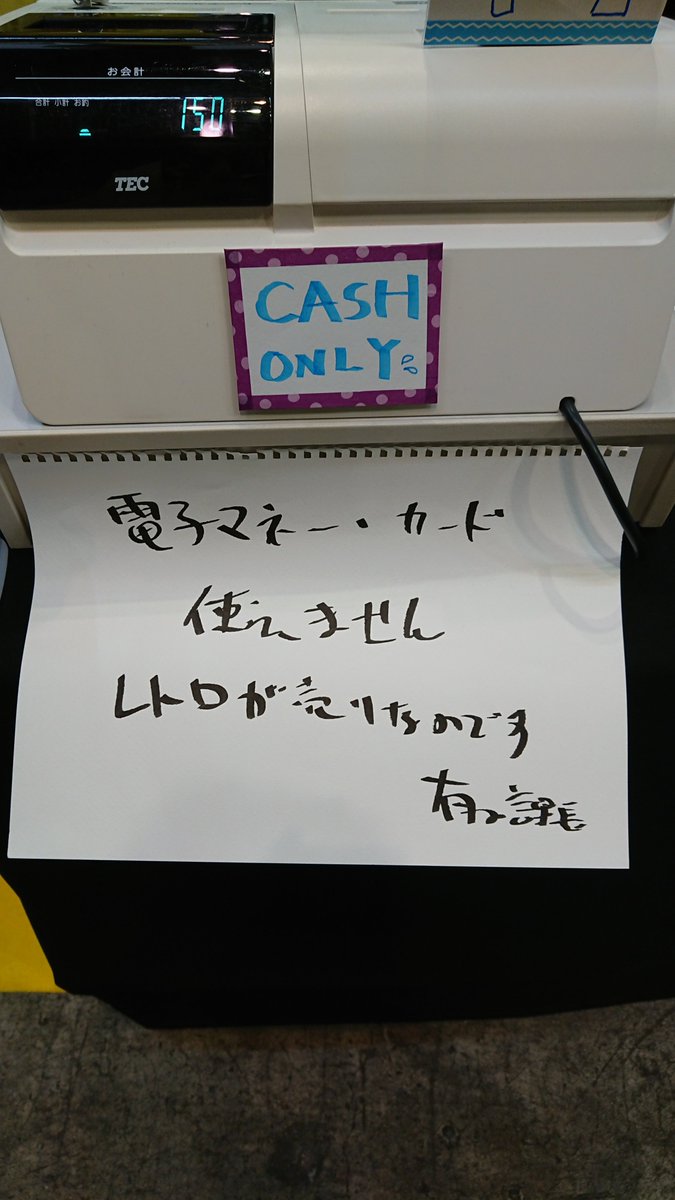 お会計
合計 小計 お釣
150
TEC
CASH
ONLY
電子マネー・カード
使えません
レトロが売りなのです
課長